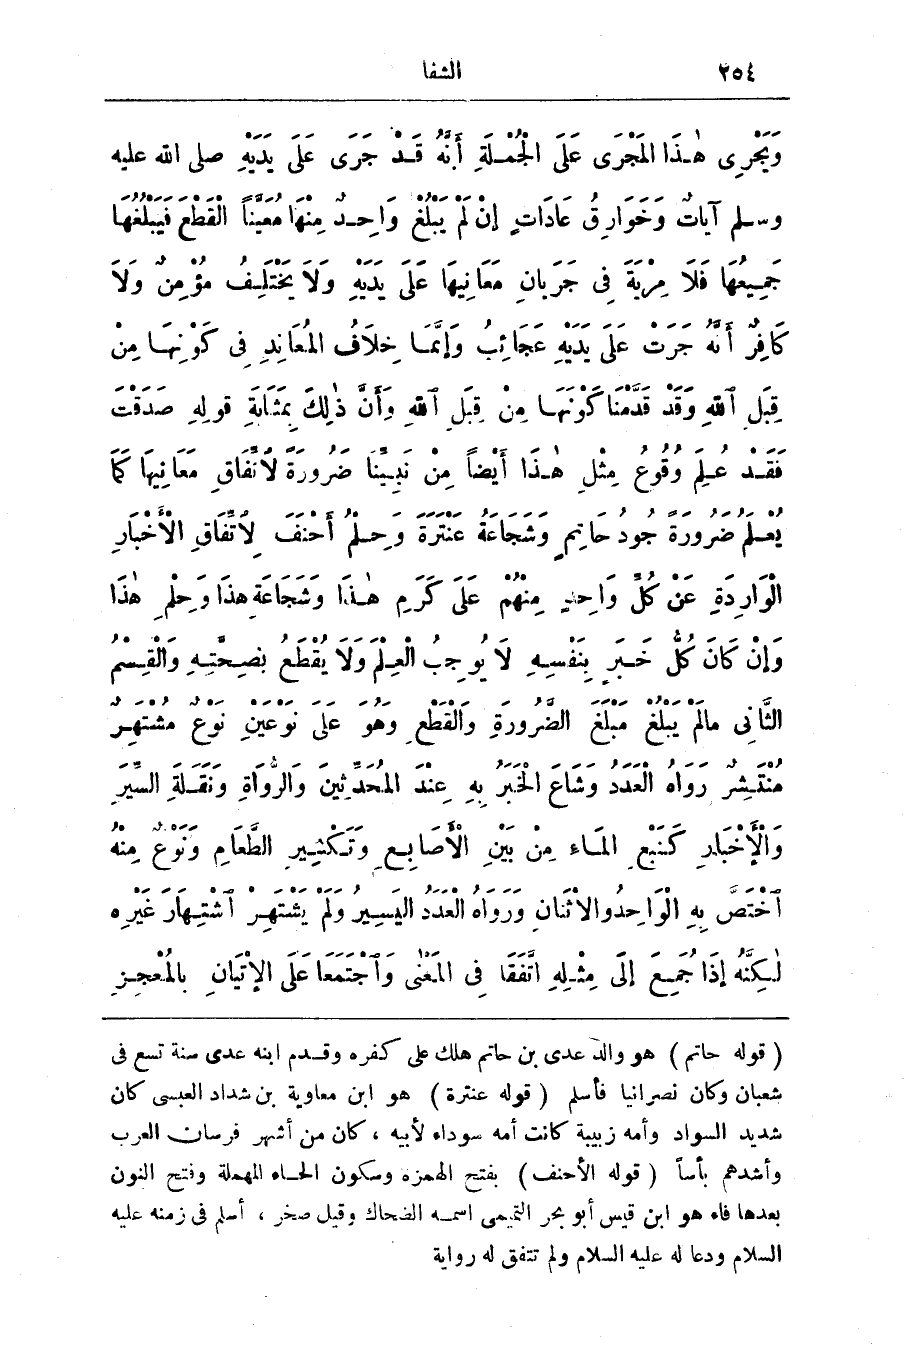 ٢٥٤ الشفا
وَيَجْرِى هٰذَا المَجْرَى عَلَى الْجُمْلَةِ أَنَّهُ قَدْ جَرَى عَلَى يَدَيْهِ صلى الله عليه
وسلم آيَاتٌ وَخَوَارِقُ عَادَاتٍ إِنْ لَمْ يَبْلُغْ وَاحِدٌ مِنْهَا مُعَيَّناً الْقَطْعَ فَيَبْلُغُهَا
جَمِيعُهَا فَلَا مِرْيَةَ فِى جَرَيَانِ مَعَانِيهَا عَلَى يَدَيْهِ وَلَا يَخْتَلِفُ مُؤْمِنٌ وَلَا
كَافِرٌ أَنَّهُ جَرَتْ عَلَى يَدَيْهِ عَجَائِبُ وَإِنَّمَا خِلَافُ المُعَانِدِ فِى كَوْنِهَا مِنْ
قِبَلِ ٱللهِ وَقَدْ قَدَّمْنَا كَوْنَهَا مِنْ قِبَلِ ٱللهِ وَأَنَّ ذٰلِكَ بِمَثَابَةِ قَوْلِهِ صَدَقْتَ
فَقَدْ عُلِمَ وُقُوعُ مِثْلِ هٰذَا أَيْضاً مِنْ نَبِيِّنَا ضَرُورَةً لاتِّفَاقِ مَعَانِيهَا كَمَا
يُعْلَمُ ضَرُورَةً جُودُ حَاتِمٍ وَشَجَاعَةُ عَنْتَرَةَ وَحِلْمُ أَحْنَفَ لاتِّفَاقِ الْأَخْبَارِ
الْوَارِدَةِ عَنْ كُلِّ وَاحِدٍ مِنْهُمْ عَلَى كَرَمِ هٰذَا وَشَجَاعَةِ هٰذَا وَحِلْمِ هٰذَا
وَإِنْ كَانَ كُلُّ خَبَرٍ بِنَفْسِهِ لَا يُوجِبُ الْعِلْمَ وَلَا يُقْطَعُ بِصِحَّتِهِ وَالْقِسْمُ
الثَّانِى مَالَمْ يَبْلُغْ مَبْلَغَ الضَّرُورَةِ وَالْقَطْعِ وَهُوَ عَلَى نَوْعَيْنِ نَوْعٌ مُشْتَهِرٌ
مُنْتَشِرٌ رَوَاهُ الْعَدَدُ وَشَاعَ الْخَبَرُ بِهِ عِنْدَ المُحَدِّثِينَ وَالرُّوَاةِ وَنَقَلَةِ السِّيَرِ
وَالْأَخْبَارِ كَنَبْعِ المَاءِ مِنْ بَيْنِ الْأَصَابِعِ وَتَكْثِيرِ الطَّعَامِ وَنَوْعٌ مِنْهُ
ٱخْتَصَّ بِهِ الْوَاحِدُ وَالاثْنَانِ وَرَوَاهُ الْعَدَدُ الْيَسِيرُ وَلَمْ يَشْتَهِرْ ٱشْتِهَارَ غَيْرِهِ
لٰكِنَّهُ إِذَا جُمِعَ إِلَى مِثْلِهِ اتَّفَقَا فِى المَعْنَى وَٱجْتَمَعَا عَلَى الْإِتْيَانِ بِالمُعْجِزِ
( قوله حاتم ) هو والد عدى بن حاتم هلك على كفره وقدم ابنه عدى سنة تسع فى
شعبان وكان نصرانيا فأسلم ( قوله عنترة ) هو ابن معاوية بن شداد العبسى كان
شديد السواد وأمه زبيبة كانت أمه سوداء لأبيه ، كان من أشهر فرسان العرب
وأشدهم بأساً ( قوله الأحنف ) بفتح الهمزه وسكون الحاء المهملة وفتح النون
بعدها فاء هو ابن قيس أبو بحر التميمى اسمه الضحاك وقيل صخر ، أسلم فى زمنه عليه
السلام ودعا له عليه السلام ولم تتفق له رواية